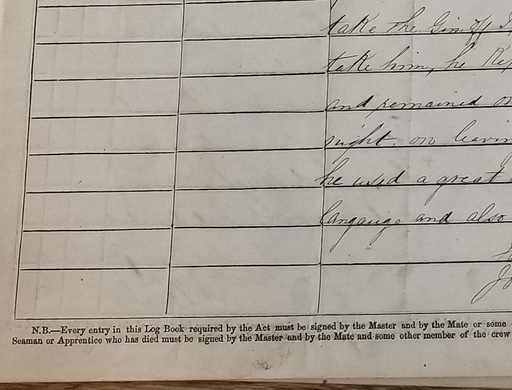 take the Gin off
take him, he
and remained
night. on
he used a great
langauge and also
N.B.—Every entry in this Log Book required by the Act must be signed by the Master and by the Mate or some
Seaman or Apprentice who has died must be signed by the Master and by the Mate and some other member of the crew